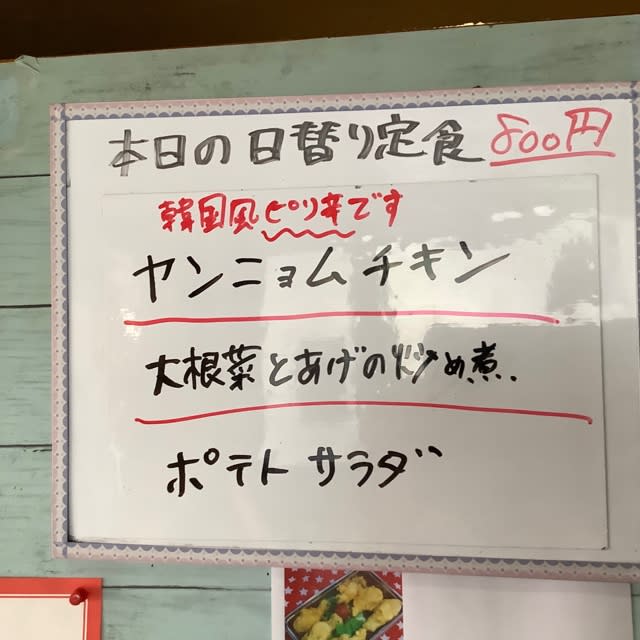 本日の日替り定食 800円
韓国風ピリ辛です
ヤンニョムチキン
大根菜とあげの炒め煮
ポテトサラダ